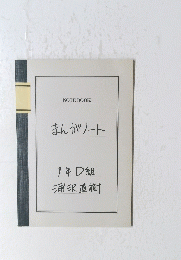 NOTEBOOK
まんがノート
1年D組
浦沢直樹